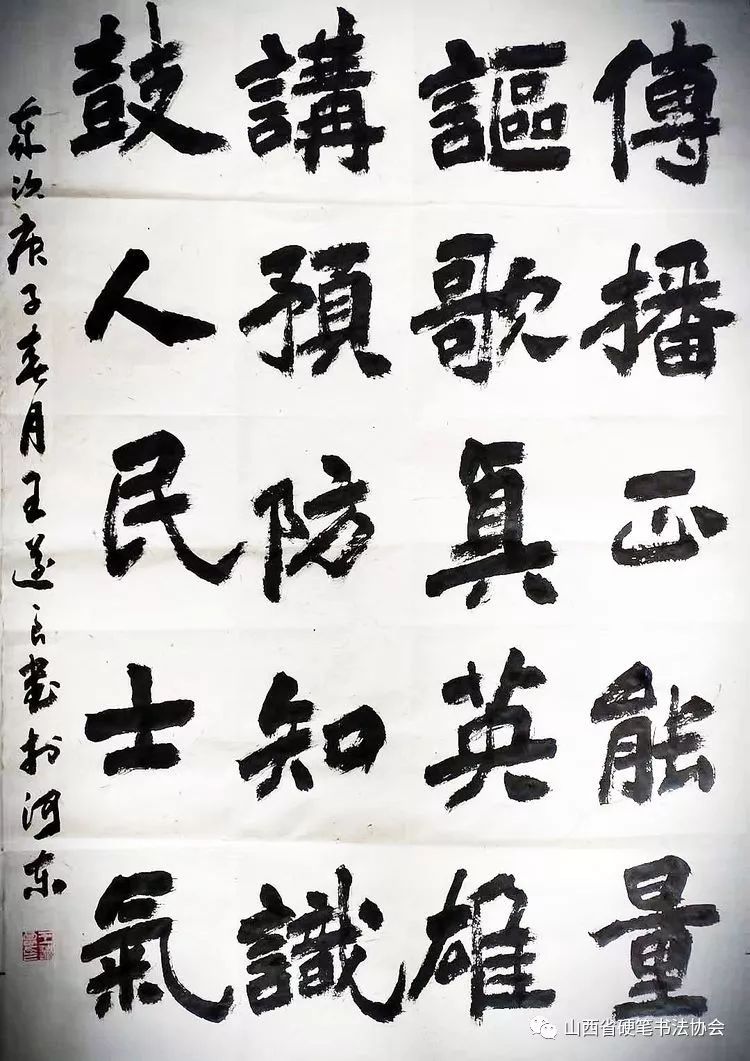 傳播正能量
謳歌真英雄
講預防知識
鼓人民士氣
庚子春月王遂良書於河東
山西省硬笔书法协会